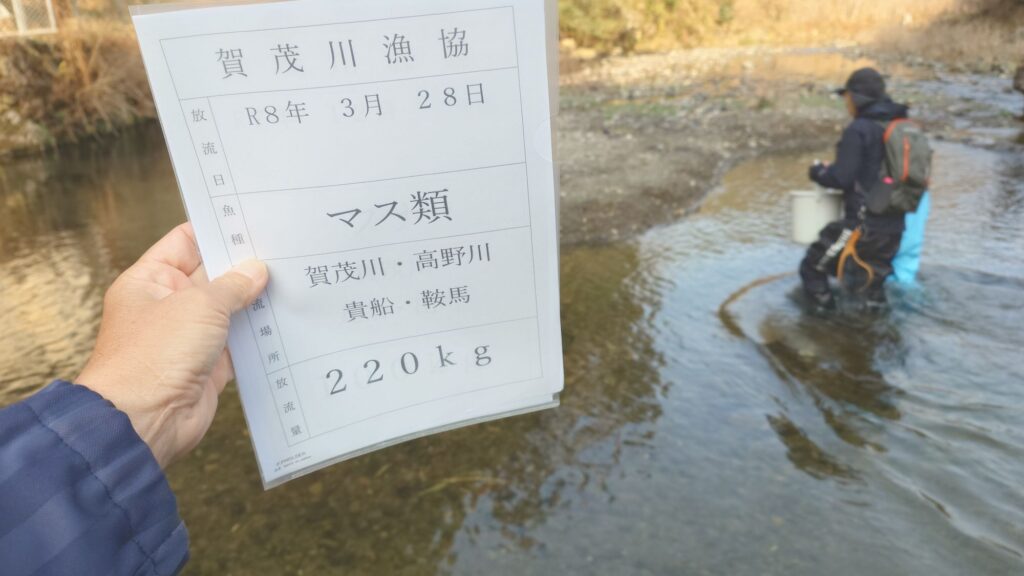 賀茂川漁協
放流日
R8年 3月 28日
魚種
マス類
流場所
賀茂川・高野川
貴船・鞍馬
放流量
220kg